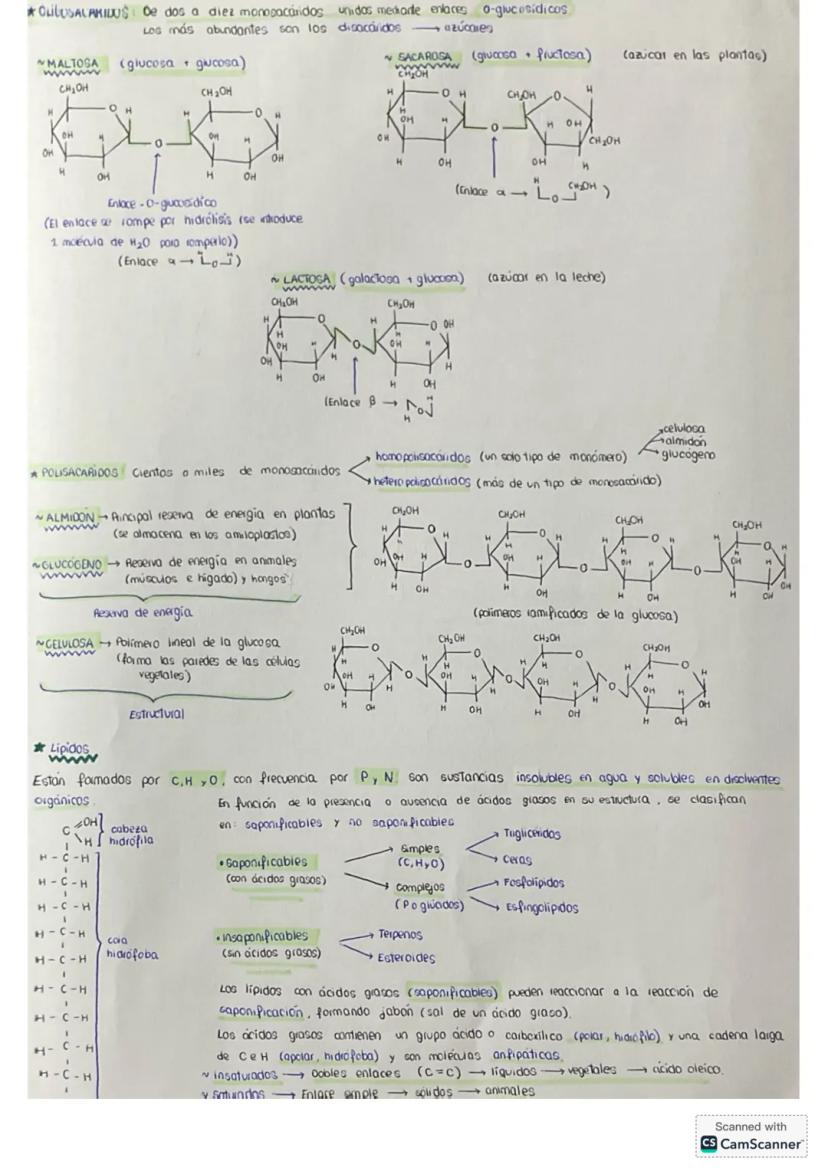 ★ OLILOSACARIDOS: De dos a diez monosacáridos unidos mediante enlaces O-glucosídicos
Los más abundantes son los disacáridos → azúcares
~ MALTOSA (glucosa + glucosa)
~ SACAROSA (glucosa + fructosa) (azúcar en las plantas)
CH₂OH CH₂OH
CH₂OH CH₂OH
CH₂OH
Enlace - O-glucosídico
(El enlace se rompe por hidrólisis (se introduce
1 molécula de H₂O para romperlo))
(Enlace α →
(Enlace α → CH₂OH )
~ LACTOSA (galactosa + glucosa) (azúcar en la leche)
CH₂OH CH₂OH
(Enlace β →
★ POLISACARIDOS: Cientos o miles de monosacáridos
homopolisacáridos (un solo tipo de monómero)
celulosa
almidón
glucógeno
heteropolisacáridos (más de un tipo de monosacárido)
~ ALMIDÓN → Principal reserva de energía en plantas
(se almacena en los amiloplastos)
~ GLUCÓGENO → Reserva de energía en animales
(músculos e hígado) y hongos
Reserva de energía
CH₂OH CH₂OH CH₂OH CH₂OH
(polímeros ramificados de la glucosa)
~ CELULOSA → Polímero lineal de la glucosa
(forma las paredes de las células
vegetales)
Estructural
CH₂OH CH₂OH CH₂OH CH₂OH
★ Lípidos
Están formados por C, H y O, con frecuencia por P y N son sustancias insolubles en agua y solubles en disolventes
orgánicos.
En función de la presencia o ausencia de ácidos grasos en su estructura, se clasifican
en: saponificables y no saponificables
C =OH
\H
cabeza
hidrófila
H - C - H
H - C - H
H - C - H
H - C - H
H - C - H
H - C - H
H - C - H
H - C - H
H - C - H
cola
hidrófoba
• Saponificables
(con ácidos grasos)
Simples
(C, H y O)
Triglicéridos
Ceras
Complejos
(P o glúcidos)
Fosfolípidos
Esfingolípidos
• Insaponificables
(sin ácidos grasos)
Terpenos
Esteroides
Los lípidos con ácidos grasos (saponificables) pueden reaccionar a la reacción de
saponificación, formando jabón (sal de un ácido graso).
Los ácidos grasos contienen un grupo ácido o carboxílico (polar, hidrófilo) y una cadena larga
de C e H (apolar, hidrófoba) y son moléculas anfipáticas.
~ insaturados → Dobles enlaces (C=C) → líquidos → vegetales → ácido oleico.
saturados → Enlace simple → sólidos → animales
Scanned with
CS CamScanner